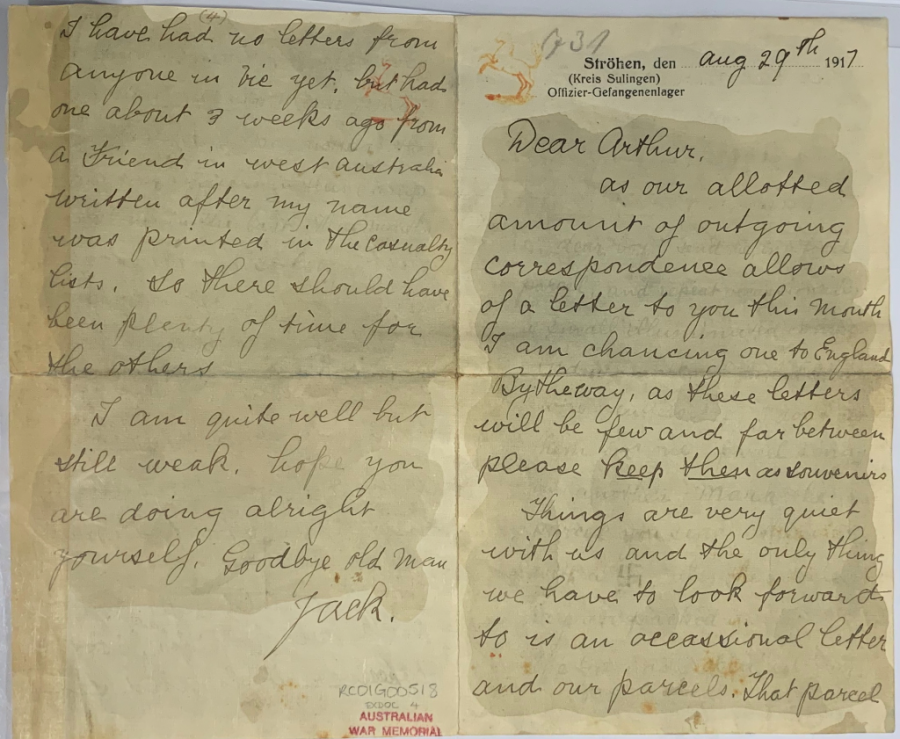 (4)
I have had no letters from
anyone in Vic yet, but had
one about 3 weeks ago from
a Friend in west australia
written after my name
was printed in the casualty
lists. so there should have
been plenty of time for
the others
I am quite well but
still weak. hope you
are doing alright
yourself. Goodbye old man
Jack.
RCDIG00513
4
AUSTRALIAN
WAR MEMORIAL
731
Ströhen, den Aug 29th 1917
(Kreis Sulingen)
Offizier-Gefangenenlager
Dear Arthur,
as our allotted
amount of outgoing
correspondence allows
of a letter to you this month
I am chancing one to England
By the way, as these letters
will be few and far between
please keep them as souvenirs
Things are very quiet
with us and the only thing
we have to look forward
to is an occassional letter
and our parcels. That parcel